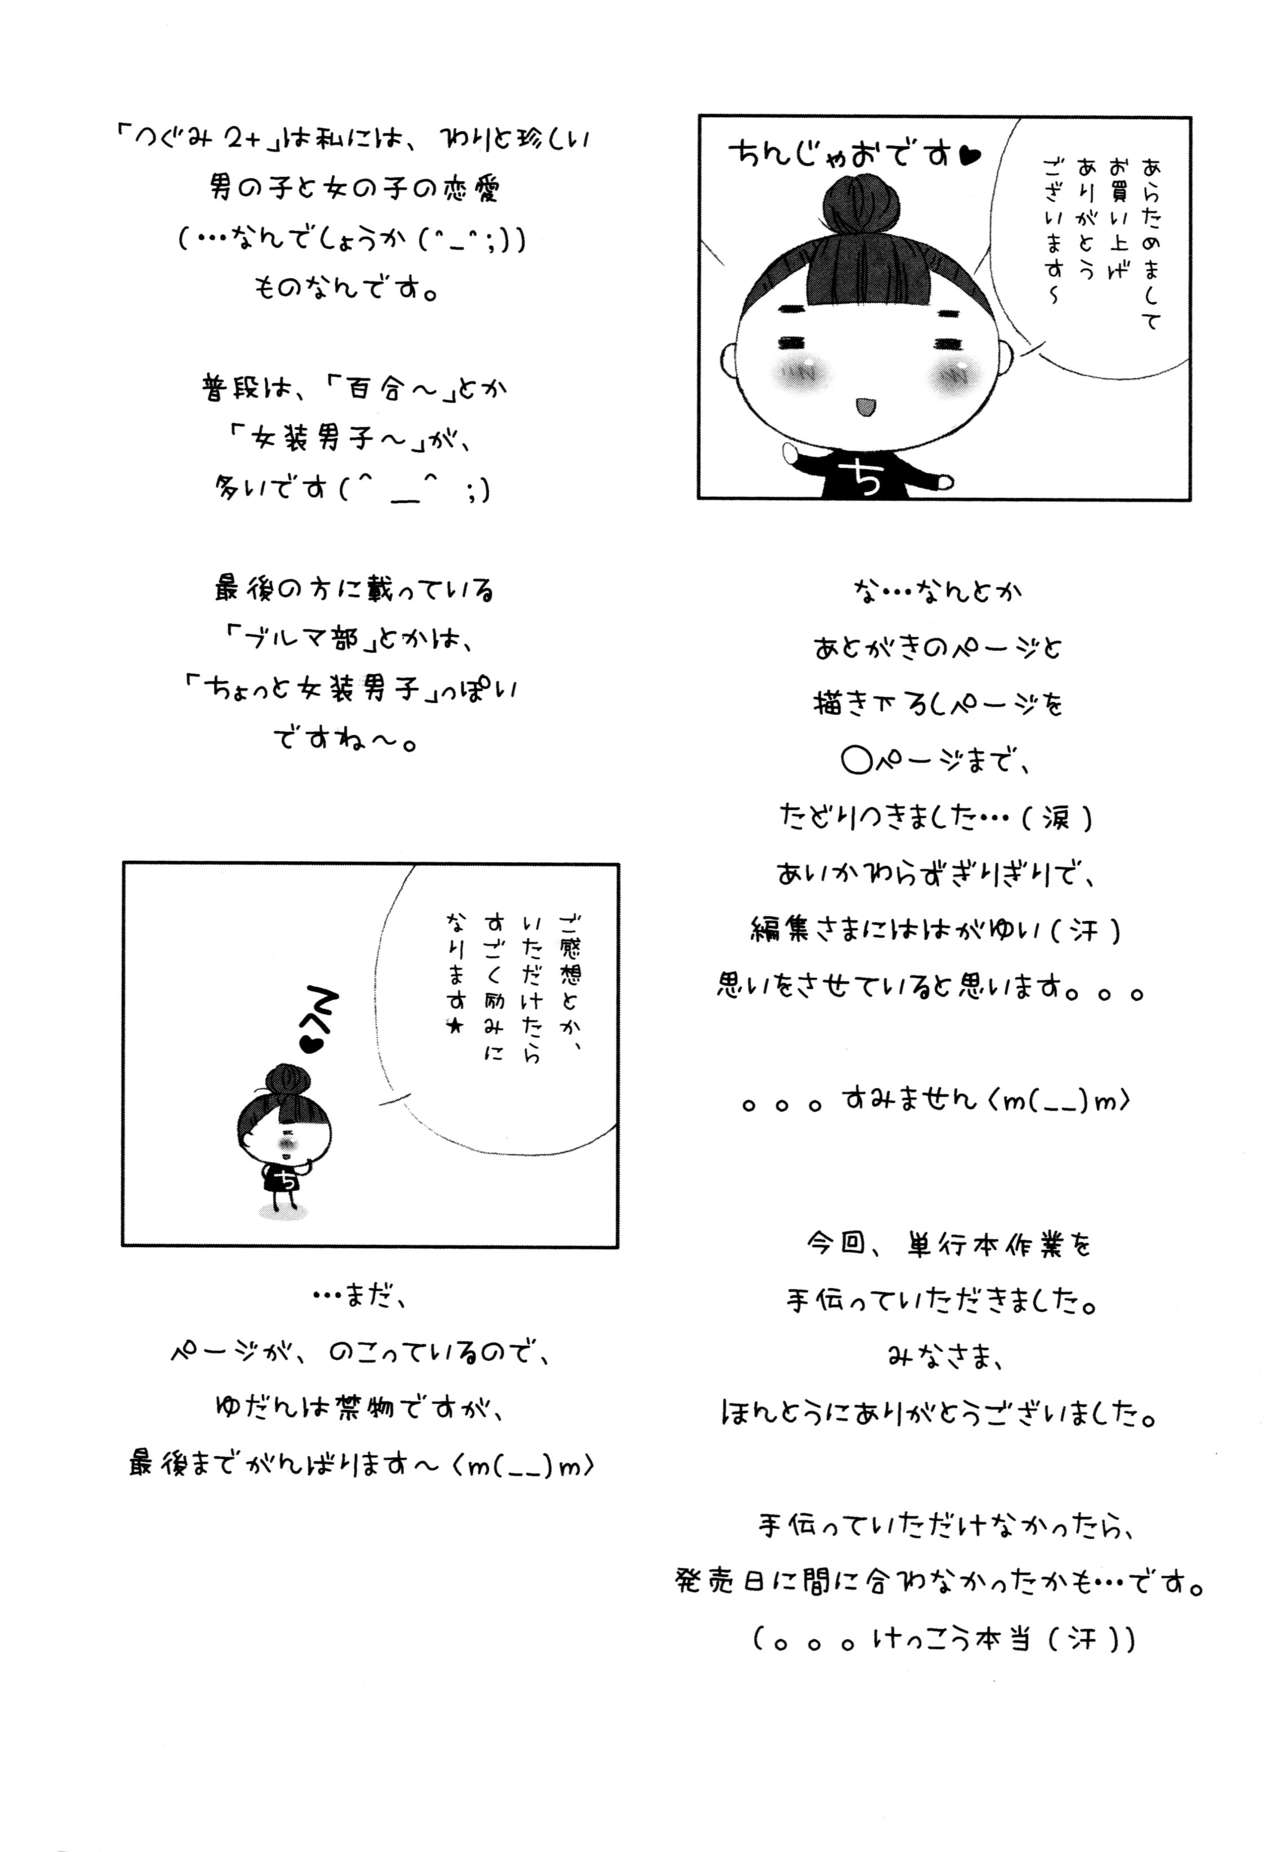 ちんじゃおです♥
あらためまして
お買い上げ
ありがとう
ございます～
ち
な…なんとか
あとがきのページと
描き下ろしページを
〇ページまで、
たどりつきました…(涙)
あいかわらずぎりぎりで、
編集さまにははがゆい(汗)
思いをさせていると思います。。。
。。。すみません〈m(__)m〉
今回、単行本作業を
手伝っていただきました。
みなさま、
ほんとうにありがとうございました。
手伝っていただけなかったら、
発売日に間に合わなかったかも…です。
(。。。けっこう本当(汗))
「つぐみ2+」は私には、わりと珍しい
男の子と女の子の恋愛
(…なんでしょうか(^_^;))
ものなんです。
普段は、「百合～」とか
「女装男子～」が、
多いです(^__^;)
最後の方に載っている
「ブルマ部」とかは、
「ちょっと女装男子」っぽい
ですね～。
ご感想とか、
いただけたら
すごく励みに
なります★
ち
…まだ、
ページが、のこっているので、
ゆだんは禁物ですが、
最後までがんばります～〈m(__)m〉